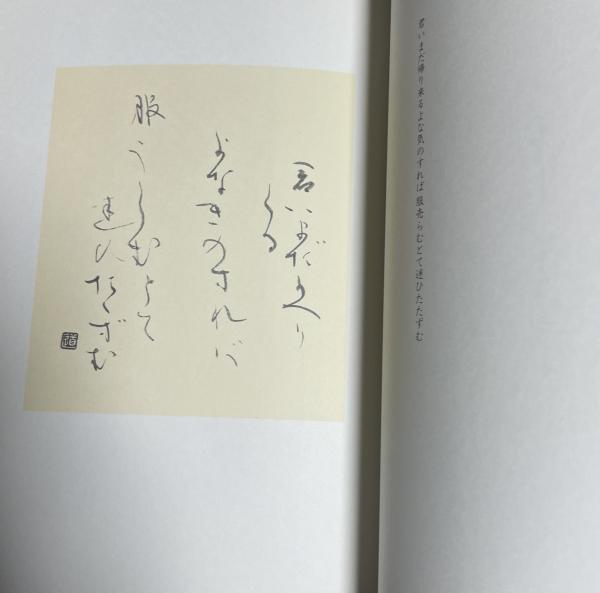 君いまだ帰り来るよな気のすれば服売らむとて迷ひたたずむ
君いまだかへり
くる
よなきのすれば
服うらむとて
迷ひたたずむ
道